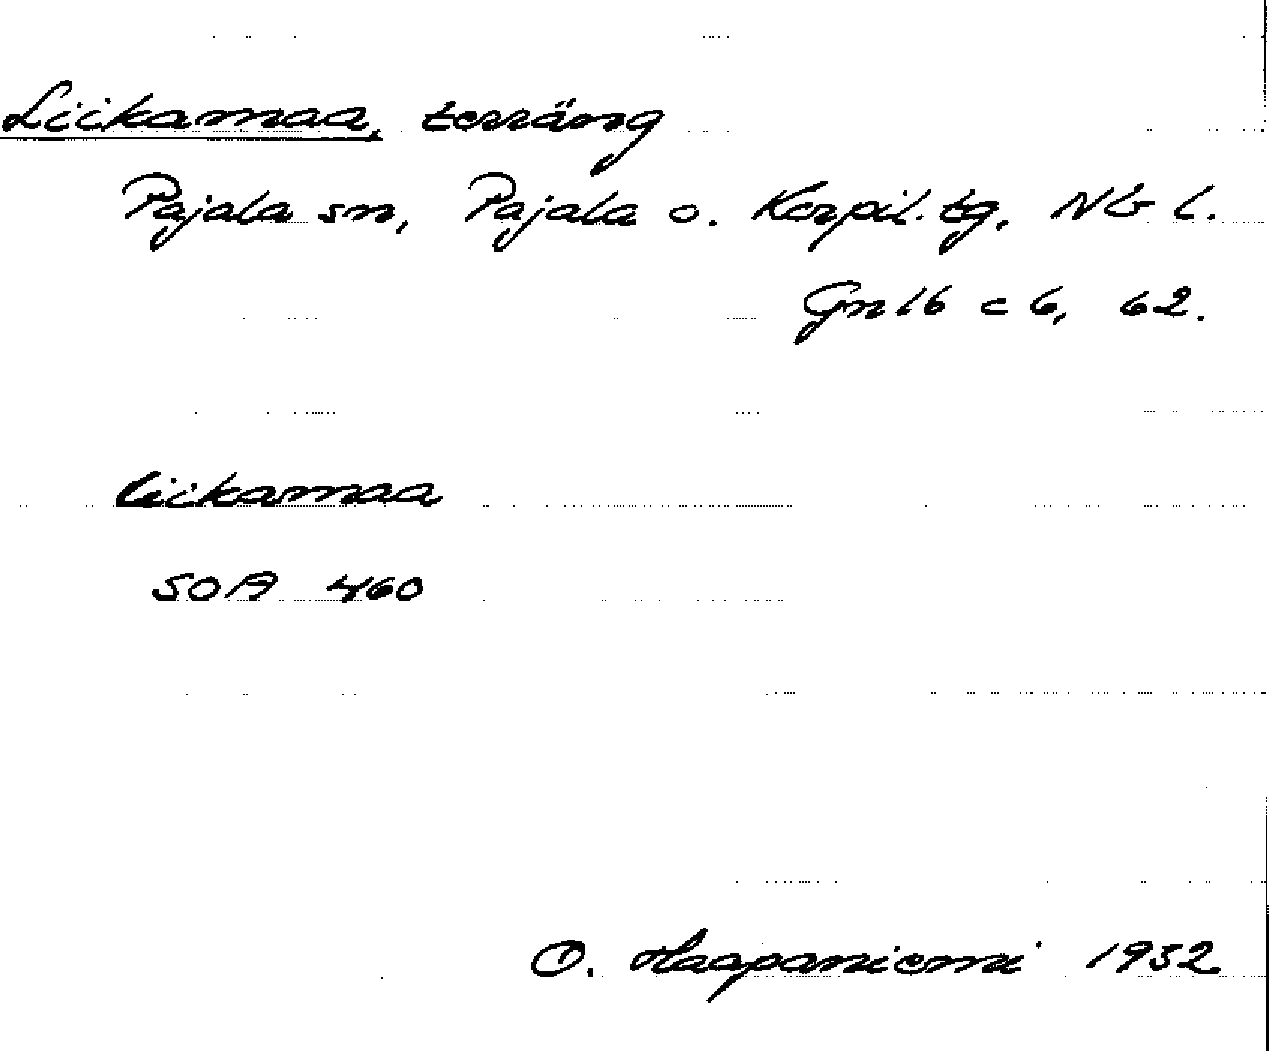 Liikamaa, terräng
Pajala sn, Pajala o. Korpil. tg, Nb l.
Gnlb c 6, 62.
liikamaa
SOA 460
O. Haapaniemi 1932